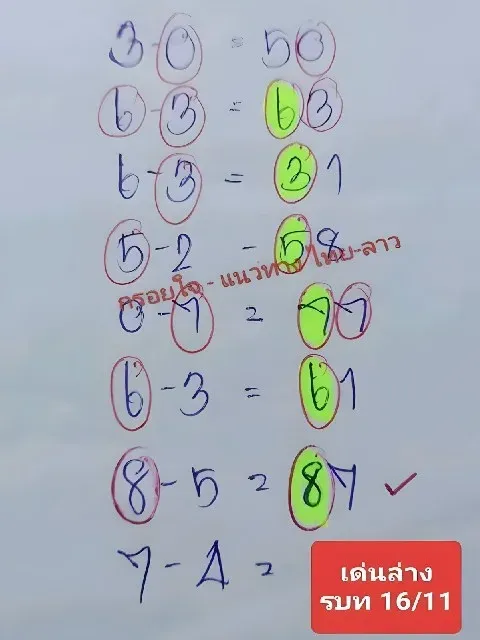 3-0 = 50
6-3 = 63
6-3 = 31
5-2 - 58
กรอยใจ - แนวทาง ไทย-ลาว
0-7 = 77
6-3 = 61
8-5 = 87 ✓
7-4 =
เด่นล่าง
รบท 16/11